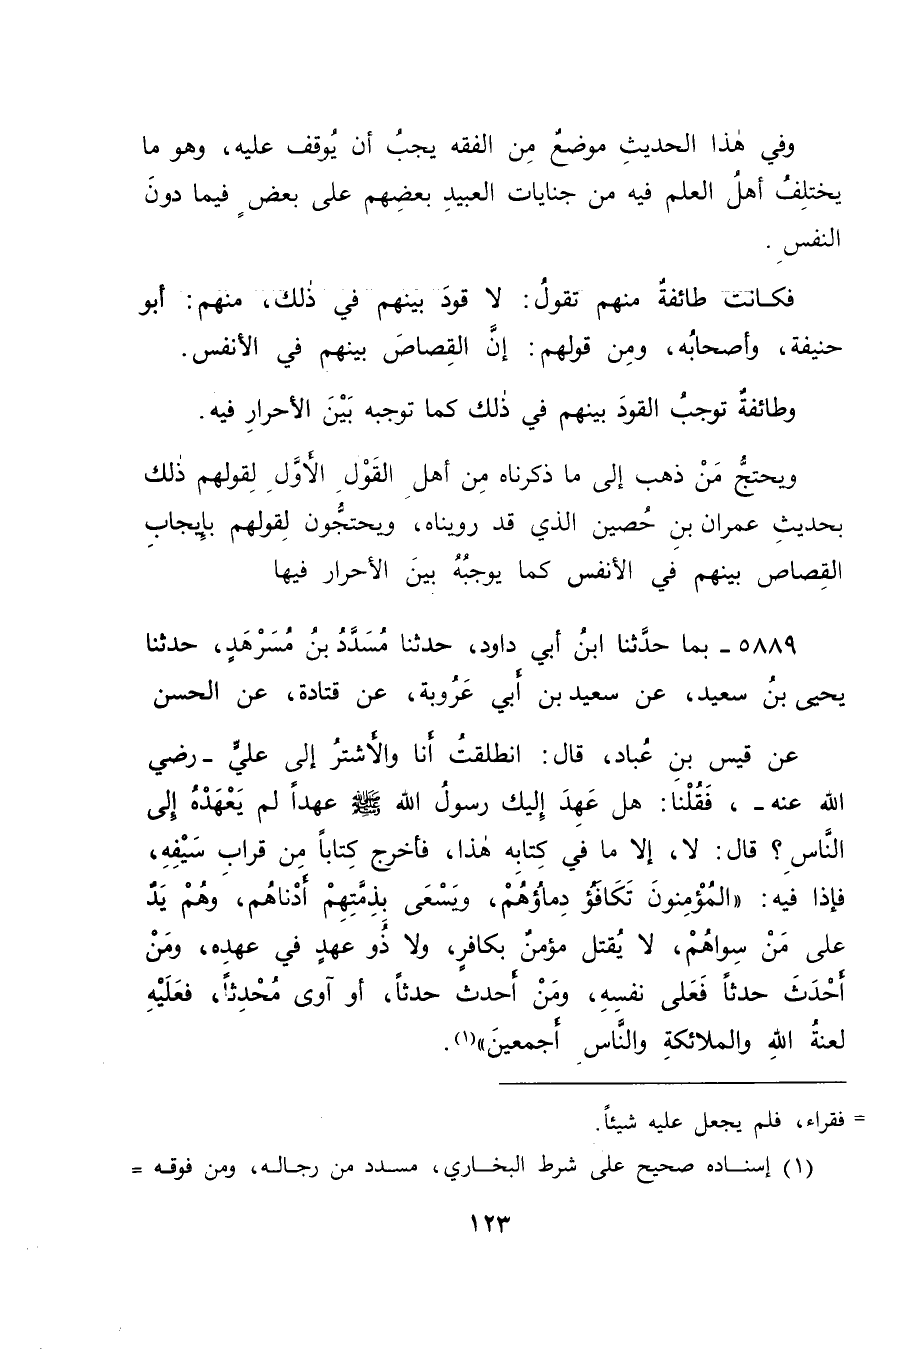 وفي هٰذا الحديثِ موضعٌ مِن الفقه يجبُ أن يُوقف عليه، وهو ما
يختلِفُ أهلُ العلم فيه من جنايات العبيدِ بعضِهم على بعضٍ فيما دونَ
النفسِ .
فكانت طائفةٌ منهم تقولُ: لا قودَ بينهم في ذٰلك، منهم: أبو
حنيفة، وأصحابُه، ومِن قولهم: إنَّ القِصاصَ بينهم في الأنفس.
وطائفةٌ توجبُ القودَ بينهم في ذٰلك كما توجبه بَيْنَ الأحرارِ فيه.
ويحتجُّ مَنْ ذهب إلى ما ذكرناه مِن أهلِ القَوْلِ الأَوَّلِ لِقولهم ذٰلك
بحديثِ عمران بنِ حُصين الذي قد رويناه، ويحتجُّون لقولهم بإيجابِ
القِصاصِ بينهم في الأنفس كما يوجبُهُ بينَ الأحرار فيها
٥٨٨٩ ـ بما حدَّثنا ابنُ أبي داود، حدثنا مُسَدَّدُ بنُ مُسَرْهَدٍ، حدثنا
يحيى بنُ سعيد، عن سعيد بن أبي عَرُوبة، عن قتادة، عن الحسن
عن قيس بنِ عُباد، قال: انطلقتُ أنا والأَشترُ إلى عليٍّ ـ رضي
الله عنه ـ ، فَقُلْنا: هل عَهِدَ إليك رسولُ الله ﷺ عهداً لم يَعْهَدْهُ إلى
النَّاسِ؟ قال: لا، إلا ما في كِتابِه هٰذا، فأخرج كِتاباً مِن قرابِ سَيْفِهِ،
فإذا فيه: «المُؤْمِنونَ تَكَافَؤُ دِماؤُهُمْ، ويَسْعَى بِذِمَّتِهِمْ أَدْناهُم، وهُمْ يَدٌ
على مَنْ سِواهُمْ، لا يُقتل مؤمنٌ بكافرٍ، ولا ذُو عهدٍ في عهدِه، ومَنْ
أَحْدَثَ حدثاً فَعَلى نفسِهِ، ومَنْ أحدث حدثاً، أو آوى مُحْدِثاً، فعَلَيْهِ
لعنةُ اللهِ والملائكةِ والنَّاسِ أَجمعينَ»(١).
= فقراء، فلم يجعل عليه شيئاً.
(١) إسناده صحيح على شرط البخاري، مسدد من رجاله، ومن فوقه =
١٢٣